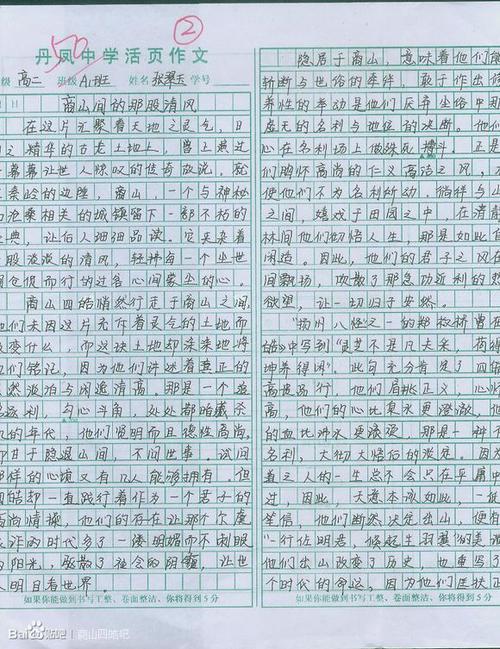 ②
50
丹凤中学活页作文
级 高二 班级 A1班 姓名 张翠玉 学号
商山间的那股清风
在这片汇聚着天地之灵气,日
之精华的古老土地上,曾上演过
一幕幕让世人惊叹的传奇故说,就
秦岭的边陲,商山,一个与神秘
沧桑相关的城镇留下一部不朽的
典,让后人细细品读。它夹杂着
股淡淡的清风,轻拂每一个尘世
间仓促而行的过客心间蒙尘的心。
商山四皓悄然行走于商山之间,
们未因这片充斥着灵令的土地而
改变什么,而这块土地却未来地将
们铭记,因为他们讲述着真正的
然淡泊与闲逸清高。那是一个
逐利,勾心斗角,处处都暗藏杀
机的年代,他们贤明而且德性高尚,
甘于隐居山间,不问世事。试问
样的心境又有几人能够拥有。但
皓却一直践行着作为一个君子的
高尚情操,他们的存在让那个欠虞
诈的时代多了一缕明媚而不刺眼
的阳光,驱散了社会的阴霾,让世
人明目看世界。
如果你能做到书写工整、卷面整洁、你将得到5分
隐居于商山,意味着他们能
斩断与世俗的牵绊,敢于作出
养性的举动是他们厌弃尘俗中
虚无的名利与地位的决断。他们
心在名利场上做殊死搏斗。正是
们胸怀高尚的仁义高洁之风,才
使他们不为名利所动,徜徉与山
之间,嬉戏于田园之中,在清
林间他们畅悟人生,那是如此自
闲适。因此,他们的君子之风在
间飘扬,吹散了那急功近利的
欲望,让一切归于安然。
扬州八怪之一的郑板桥曾在
皓中写到“灵芝不是凡夫采,荷得
坤养得闲”。此句充分肯定了四皓
高贵品行,他们肩挑正义,心怀
高,他们的心比寒水更澄澈,他们
的血比沸水更滚烫,那是一种
名利,大彻大悟后的淡定。因为
道之人的一生总不会只在平庸中
过,因此,天意本该如此,一
笃信,他们断然决定出山,便有
“一行佐明君,倏起生羽翼”的美
他们出山改变了历史,也重写了
个时代的命运,因为他们匡扶正
如果你能做到书写工整、卷面整洁、你将得到5分
Baidu贴吧 | 商山四皓吧